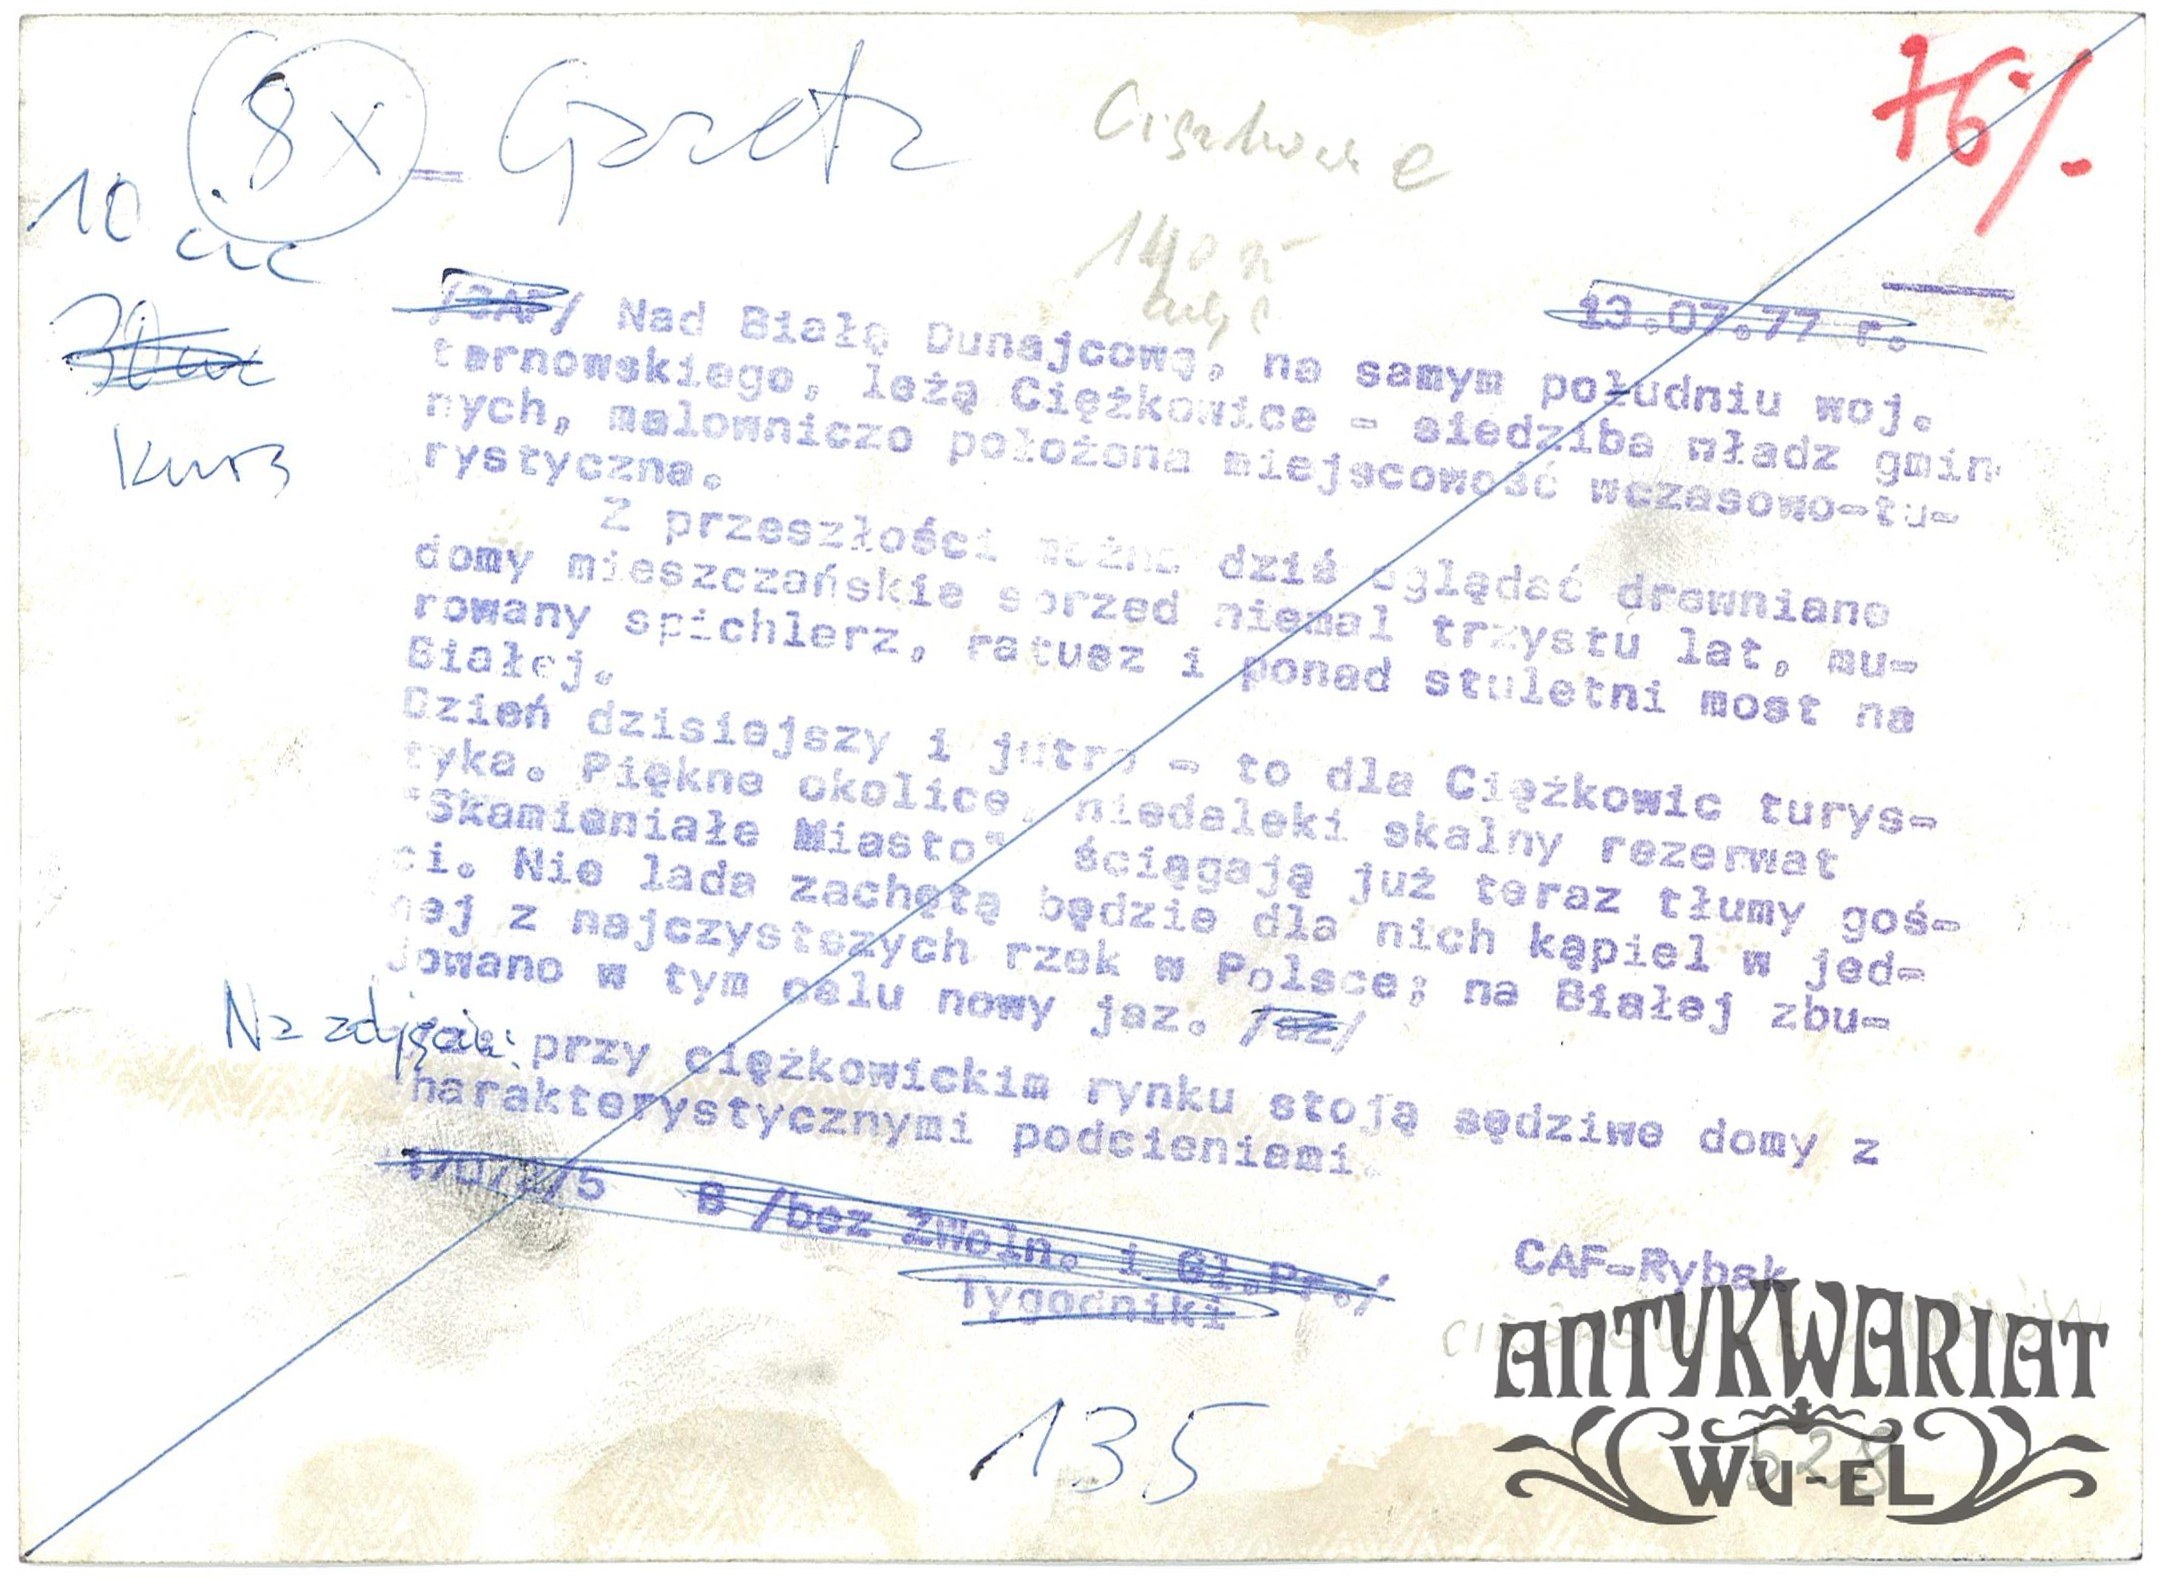 8x Gazeta
76/.
10
140 zł
13.07.77 r.
/CAF/ Nad Białą Dunajcową, na samym południu woj.
tarnowskiego, leżą Ciężkowice - siedziba władz gmin
nych, malowniczo położona miejscowość wczasowo-tu-
rystyczna.
Z przeszłości można dziś oglądać drewniane
domy mieszczańskie sprzed niemal trzystu lat, mu-
rowany spichlerz, ratusz i ponad stuletni most na
Białej.
Dzień dzisiejszy i jutro - to dla Ciężkowic turys-
tyka. Piękne okolice, niedaleki skalny rezerwat
"Skamieniałe Miasto" ściągają już teraz tłumy goś-
ci. Nie lada zachętą będzie dla nich kąpiel w jed-
nej z najczystszych rzek w Polsce; na Białej zbu-
dowano w tym celu nowy jaz. /az/
Na zdjęciu: przy ciężkowickim rynku stoją sędziwe domy z
harakterystycznymi podcieniami.
B /bez ŻWoln. i Gł.Pr./
Tygodniki
CAF-Rybak
135
628
ANTYKWARIAT
WU-EL